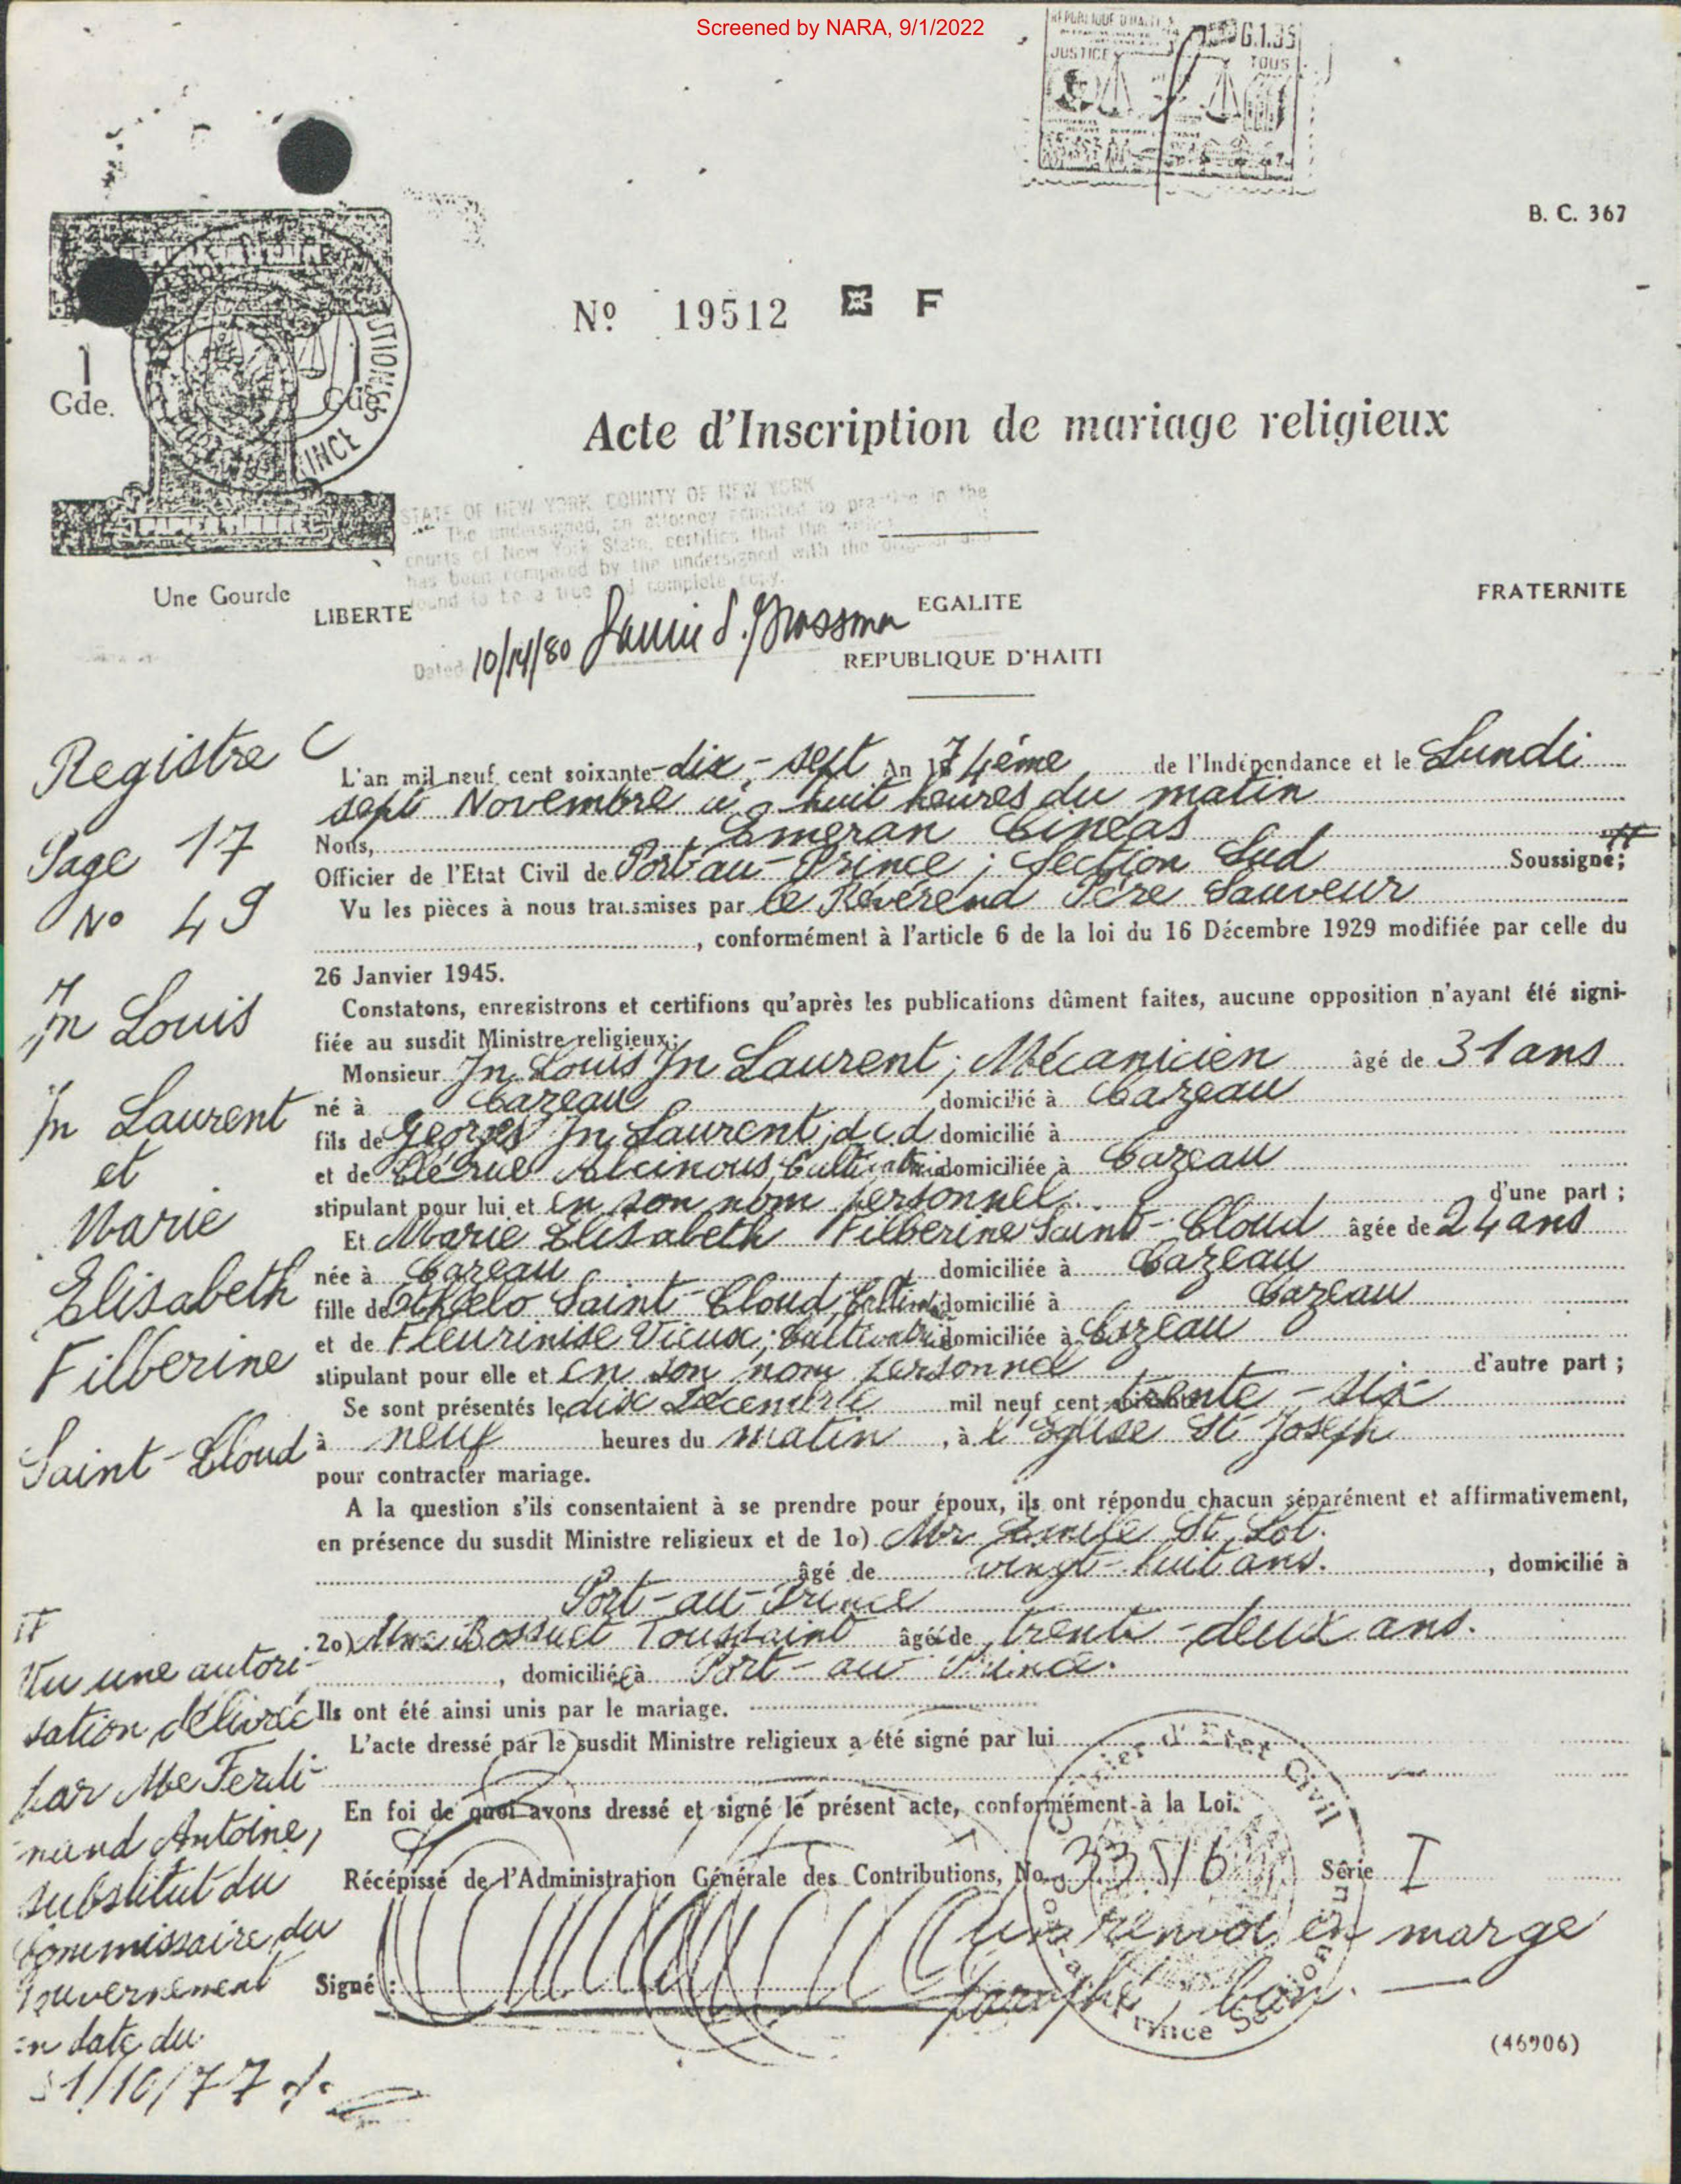 Screened by NARA, 9/1/2022
REPUBLIQUE D'HAITI
JUSTICE
TOUS
B. C. 367
Nº 19512 F
1
Gde. Gde.
Acte d'Inscription de mariage religieux
STATE OF NEW YORK COUNTY OF NEW YORK
The undersigned, an attorney admitted to practice in the
courts of New York State, certifies that the
has been compared by the undersigned with the original and
found to be a true and complete copy.
Une Gourde
LIBERTE EGALITE FRATERNITE
Dated 10/14/80
REPUBLIQUE D'HAITI
Registre C
Page 17
Nº 49
Jn Louis
Jn Laurent
et
Marie
Elisabeth
Filberine
Saint-Cloud
L'an mil neuf cent soixante-dix-sept An 174ème de l'Indépendance et le Lundi
sept Novembre à huit heures du matin
Nous, Emeran Cinéas
Officier de l'Etat Civil de Port-au-Prince; Section Sud Soussigné;
Vu les pièces à nous transmises par le Révérend Père Sauveur
, conformément à l'article 6 de la loi du 16 Décembre 1929 modifiée par celle du
26 Janvier 1945.
Constatons, enregistrons et certifions qu'après les publications dûment faites, aucune opposition n'ayant été signi-
fiée au susdit Ministre religieux;
Monsieur Jn Louis Jn Laurent; Mécanicien âgé de 31 ans
né à Cazeau domicilié à Cazeau
fils de Georges Jn Laurent; dcd domicilié à
et de Alcinous, Cultivatrice domiciliée à Cazeau
stipulant pour lui et en son nom personnel d'une part;
Et Marie Elisabeth Filberine Saint-Cloud âgée de 24 ans
née à Cazeau domiciliée à Cazeau
fille de Othelo Saint-Cloud, domicilié à Cazeau
et de Fleurinise Vieux; Cultivatrice domiciliée à Cazeau
stipulant pour elle et en son nom personnel d'autre part;
Se sont présentés le dix Décembre mil neuf cent trente-six
à neuf heures du matin, à l'Eglise St Joseph
pour contracter mariage.
A la question s'ils consentaient à se prendre pour époux, ils ont répondu chacun séparément et affirmativement,
en présence du susdit Ministre religieux et de 1o) Mr Emile St Lot.
âgé de vingt-huit ans. , domicilié à
Port-au-Prince
2o) Mme Bossuet Toussaint âgée de trente-deux ans.
, domiciliée à Port-au-Prince.
Ils ont été ainsi unis par le mariage.
L'acte dressé par le susdit Ministre religieux a été signé par lui
En foi de quoi avons dressé et signé le présent acte, conformément à la Loi.
Récépissé de l'Administration Générale des Contributions, No 33516 Série I
un renvoi en marge
Signé: paraphé; bon.
Vu une autori-
sation délivrée
par Me Ferdi-
nand Antoine,
substitut du
Commissaire du
Gouvernement
en date du
31/10/77
Officier d'Etat Civil
Port-au-Prince Section Sud
(46906)